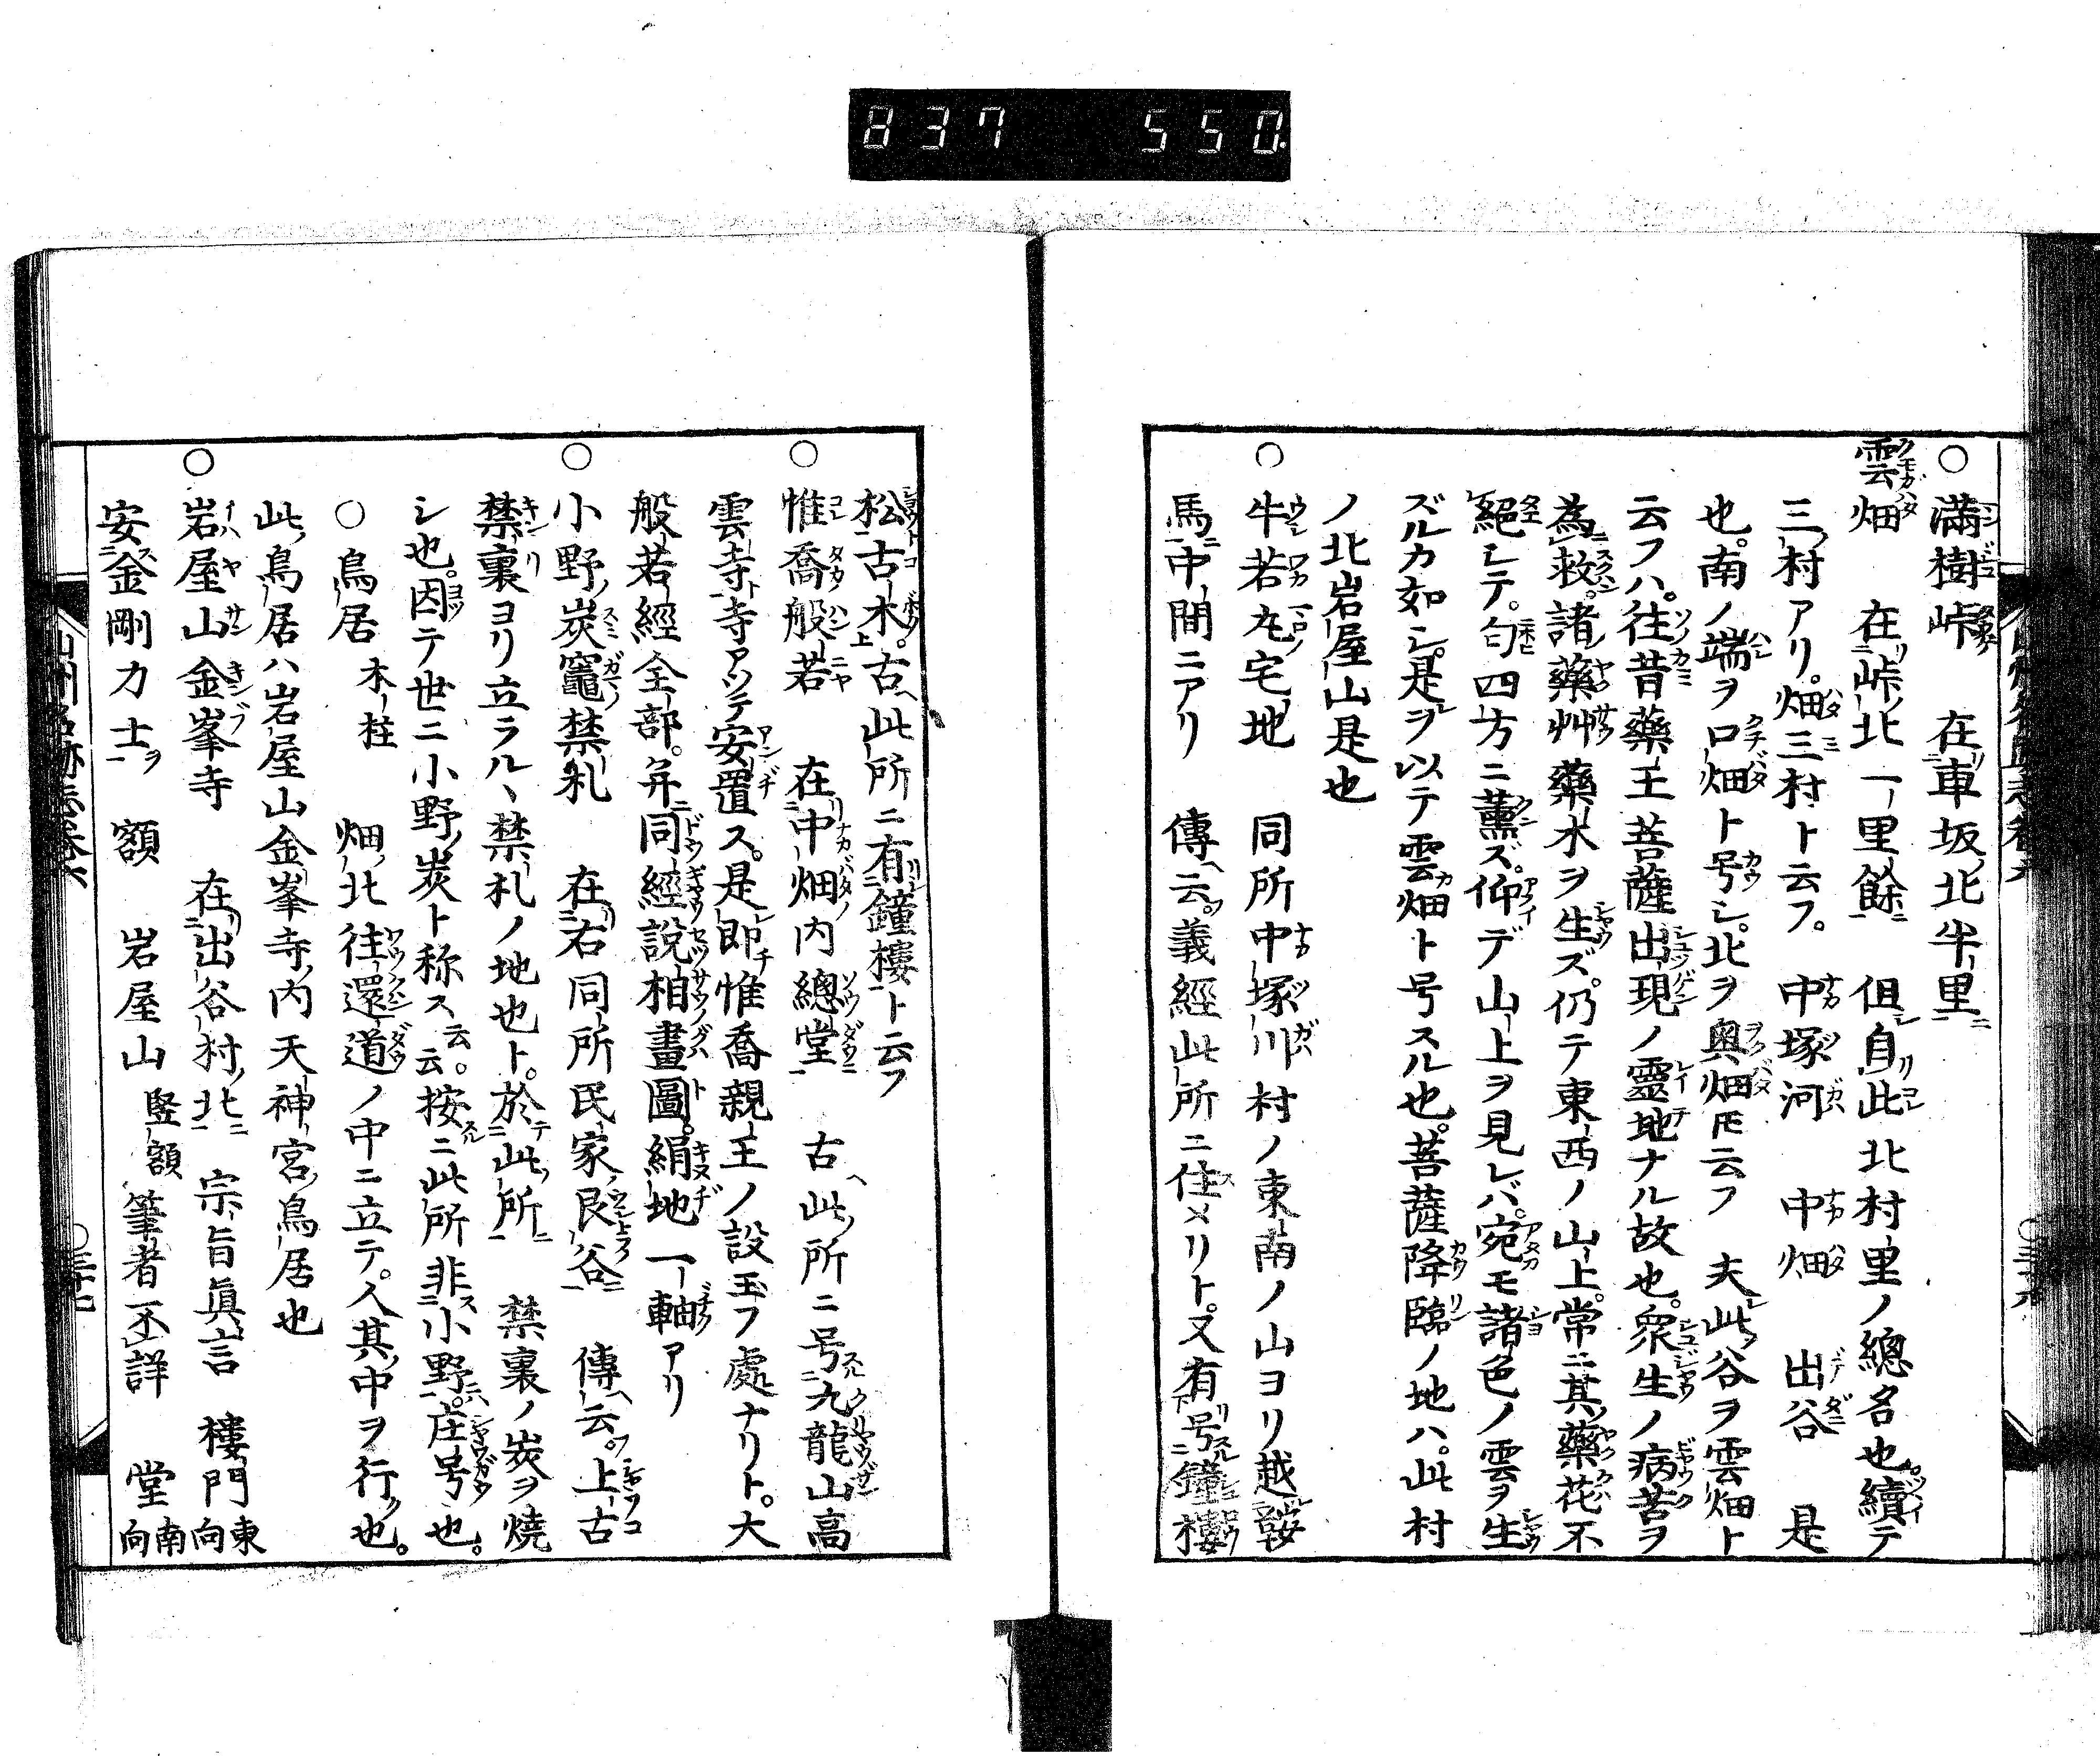 837 550.
○満樹峠 在車坂北半里
雲畑 在峠北一里餘 但自此北村里ノ總名也續テ
三村アリ。畑三村ト云フ。 中塚河 中畑 出谷 是
也。南ノ端ヲ口畑ト号シ。北ヲ奥畑𪜈云フ 夫此谷ヲ雲畑ト
云フハ。往昔藥王菩薩出現ノ靈地ナル故也。衆生ノ病苦ヲ
為救。諸藥艸藥木ヲ生ズ。仍テ東西ノ山上。常ニ其藥花不
絕シテ。匂四方ニ薫ズ。仰デ山上ヲ見レバ。宛モ諸色ノ雲ヲ生
ズルカ如シ。是ヲ以テ雲畑ト号スル也。菩薩降臨ノ地ハ。此村
ノ北岩屋山是也
○牛若丸宅地 同所中塚川村ノ東南ノ山ヨリ越鞍
馬中間ニアリ 傳云。義經此所ニ住メリト。又有号鐘樓
松古木。古此所ニ有鐘樓ト云フ
○惟喬般若 在中畑内總堂 古此所ニ号九龍山高
雲寺寺アツテ安置ス。是即惟喬親王ノ設玉フ處ナリト。大
般若經全部。并同經說相畫圖。絹地一軸アリ
○小野炭竈禁札 在右同所民家艮谷 傳云。上古
禁裏ヨリ立ラル、禁札ノ地也ト。於此所 禁裏ノ炭ヲ燒
シ也。因テ世ニ小野炭ト称ス云云。按ニ此所非小野庄号也。
○鳥居 木柱 畑北往還道ノ中ニ立テ。人其中ヲ行也。
此鳥居ハ岩屋山金峯寺内天神宮鳥居也
○岩屋山金峯寺 在出谷村北 宗旨眞言 樓門東向
安金剛力士 額 岩屋山 竪額 筆者不詳 堂南向